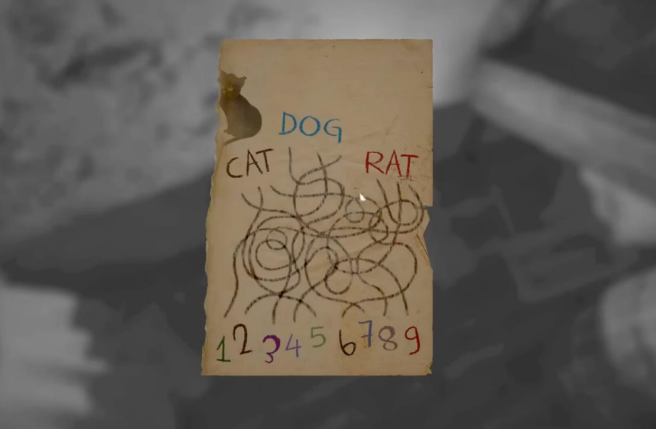 DOG
CAT RAT
1 2 3 4 5 6 7 8 9